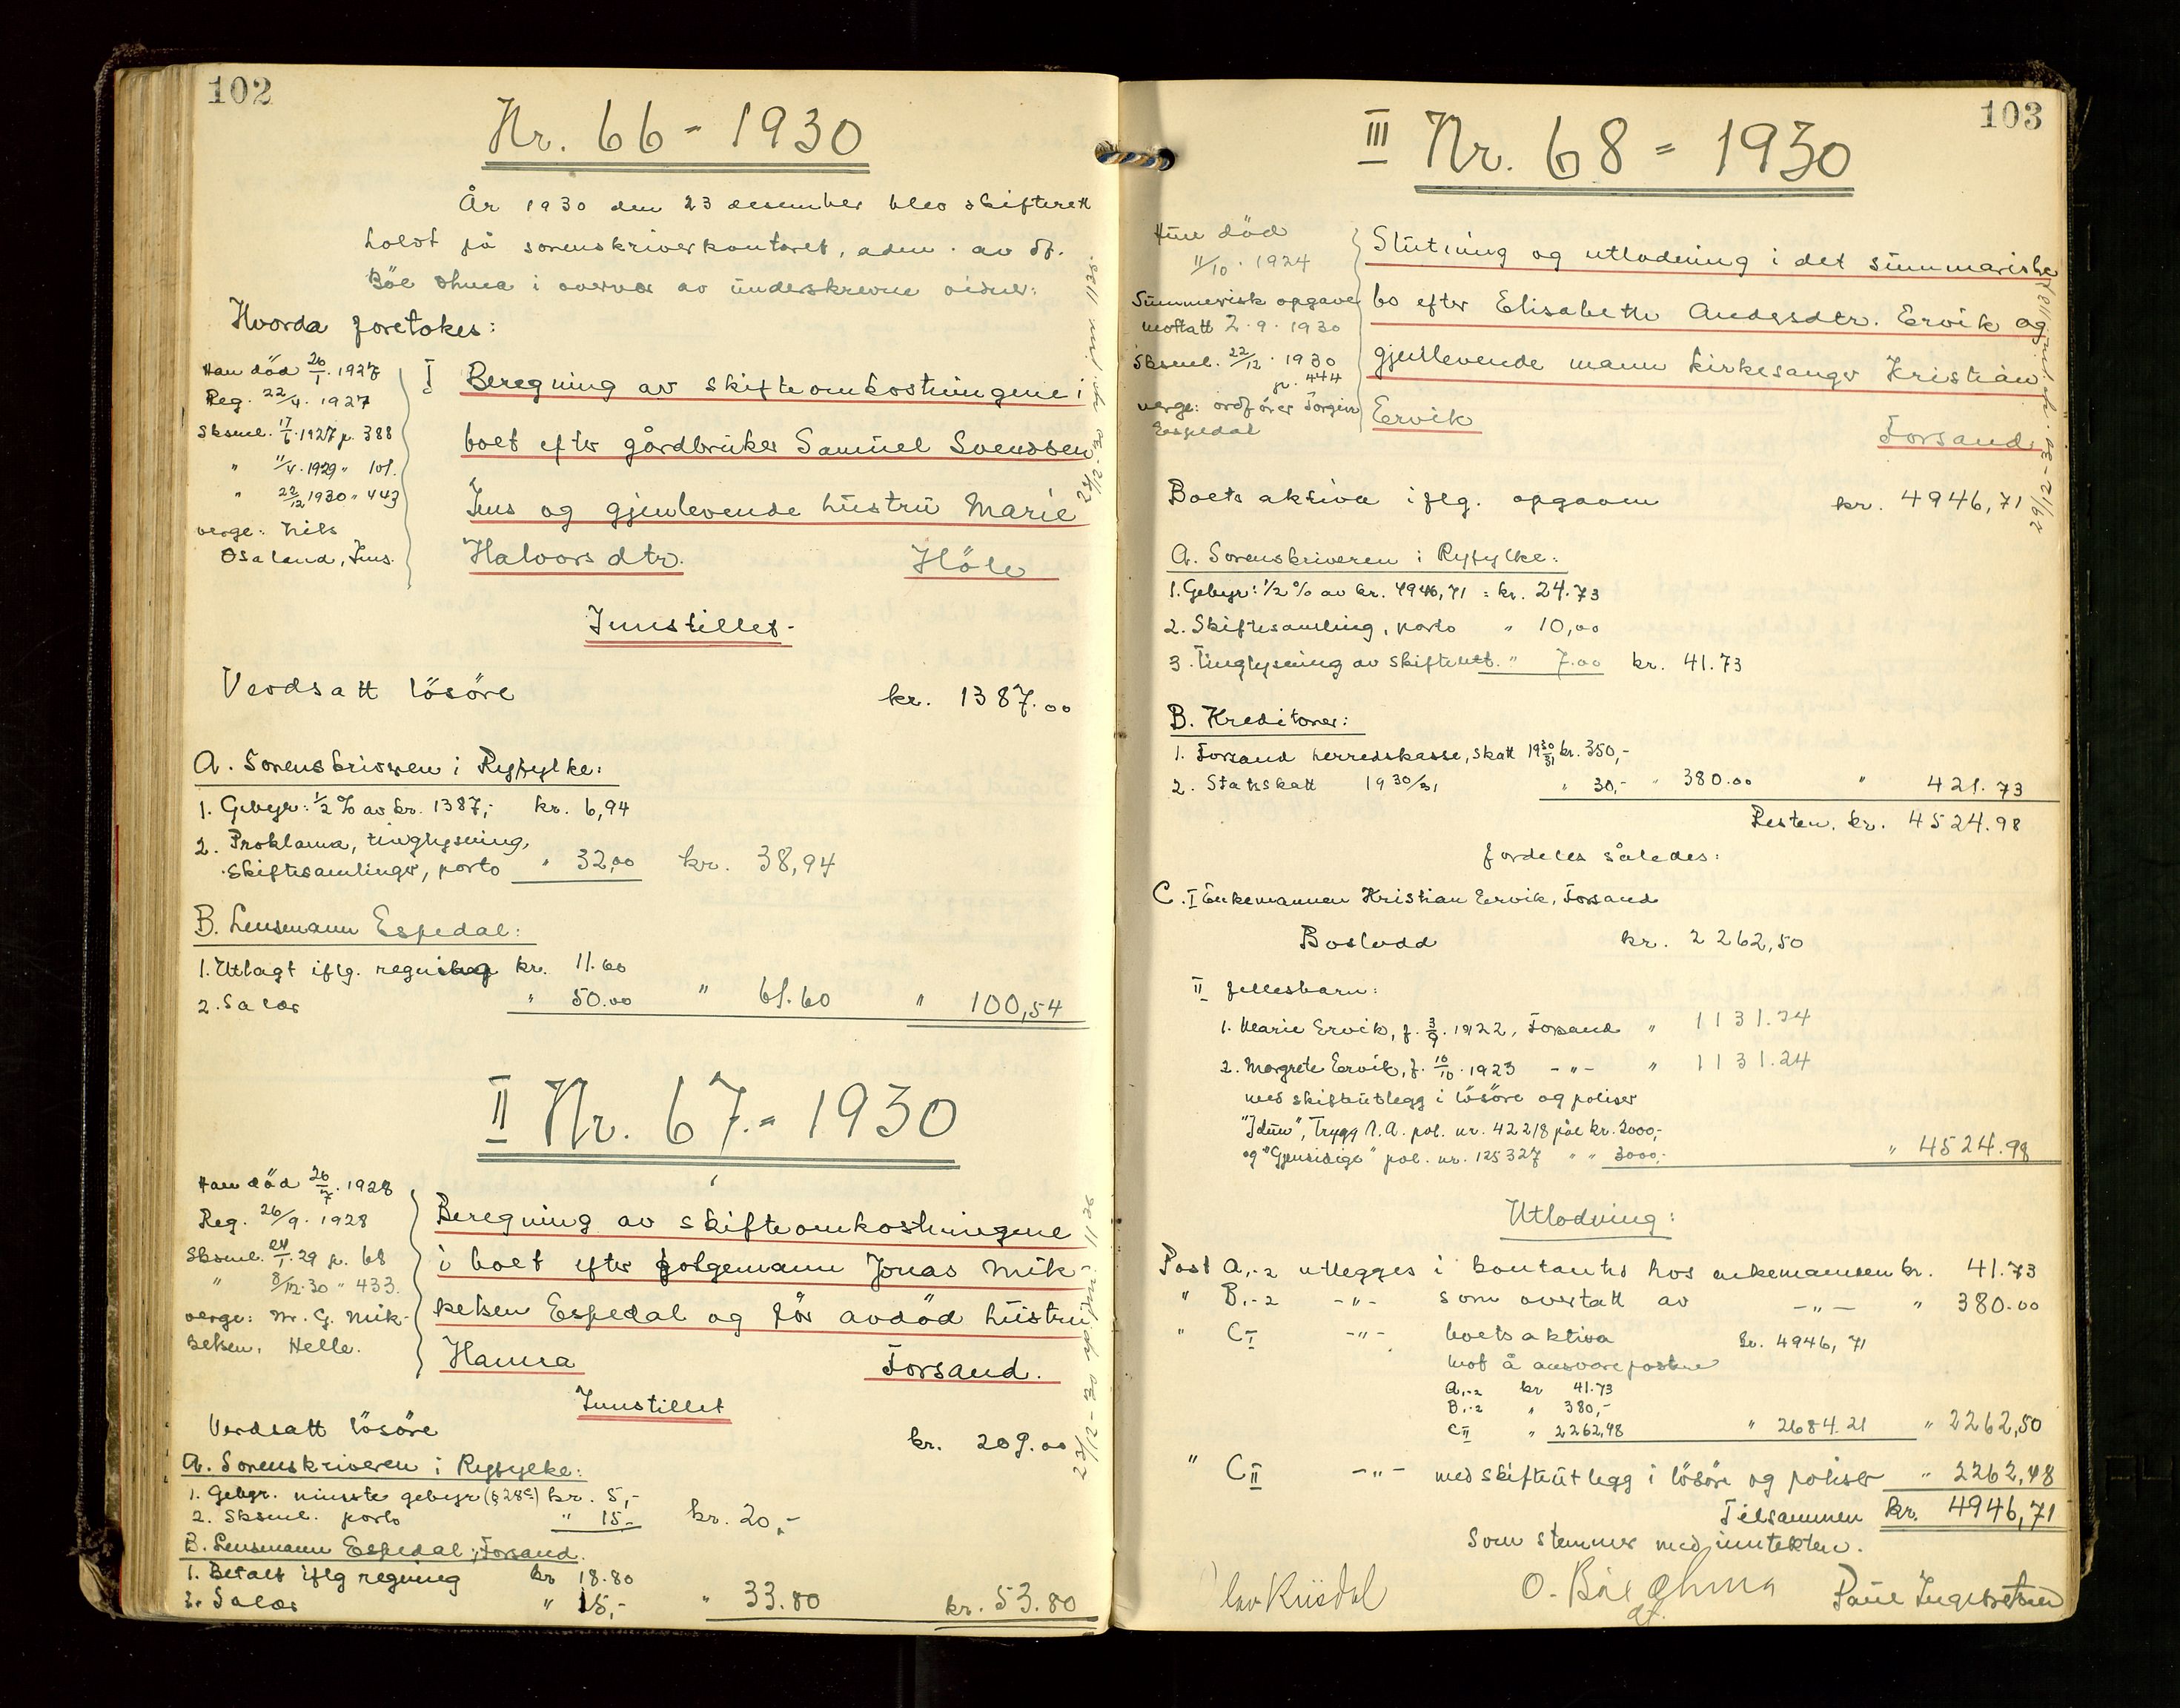 102
Nr. 66 - 1930
År 1930 den 23 desember blev skifterett
holdt på sorenskriverkontoret, adm. av df.
Böe Ohma i overvær av underskrevne vidner:
Hvorda foretokes:
Han död 26/1. 1927
Reg. 22/4. 1927
Sksml. 17/6. 1927 p. 388
" 11/4. 1929 " 101.
" 22/12 1930 " 443
verge: Nils
Osaland, Ims.
I Beregning av skifteomkostningene i
boet efter gårdbruker Samuel Svendsen
Ims og gjenlevende hustru Marie
Halvorsdtr. Höle
Innstillet-
Verdsatt lösöre kr. 1387.00
A. Sorenskriveren i Ryfylke:
1. Gebyr: 1/2 % av kr. 1387,- kr. 6,94
2. Proklama, tinglysning,
skiftesamlinger, porto " 32,00 kr. 38,94
B. Lensmann Espedal:
1. Utlagt iflg. regning kr. 11.60
2. Salær " 50.00 " 61.60 " 100,54
II Nr. 67.- 1930
Han död 26/7. 1928
Reg. 26/9. 1928
Sksml. 24/1. 29 p. 68
" 8/12. 30 " 433.
verge: M. G. Mik-
kelsen, Helle.
Beregning av skifteomkostningene
i boet efter folgemann Jonas Mik-
kelsen Espedal og för avdöd hustru
Hanna Forsand.
Innstillet
Verdsatt lösöre kr. 209.00
A. Sorenskriveren i Ryfylke:
1. Gebyr. minste gebyr (§ 28c) kr. 5,-
2. Sksml. porto " 15- kr. 20,-
B. Lensmann Espedal, Forsand.
1. Betalt iflg regning kr 18.80
2. Salær " 15,- " 33.80 kr. 53.80
103
III Nr. 68 - 1930
Hun död
11/10. 1924
Summarisk opgave
mottatt 2.9.1930
Sksml. 22/12. 1930
p. 444
verge: ordförer Torgeir
Espedal
Slutning og utlodning i det summariske
bo efter Elisabeth Andersdtr. Ervik og
gjenlevende mann kirkesanger Kristian
Ervik
Forsand
Boets aktiva iflg. opgaven kr. 4946,71
A. Sorenskriveren i Ryfylke:
1. Gebyr: 1/2 % av kr. 4946,71 = kr. 24.73
2. Skiftesamling, porto " 10,00
3. Tinglysning av skifteutl. " 7.00 kr. 41.73
B. Kreditorer:
1. Forsand herredskasse, skatt 1930/31 kr. 350,-
2. Statsskatt 1930/31 " 30,- " 380.00 " 421.73
Resten kr. 4524.98
fordeles således:
C. I Enkemannen Kristian Ervik, Forsand
Boslodd kr. 2262,50
II fellesbarn:
1. Marie Ervik, f. 3/9. 1922, Forsand " 1131.24
2. Margrete Ervik, f. 10/10. 1923 -"- " 1131.24
med skifteutlegg i lösöre og poliser
"Idun", Trygg A.A. pol. nr. 42218 pål kr. 2000,-
og "Gjensidige" pol. nr. 125327 " " 3000,- " 4524.98
Utlodning:
Post A,-2 utlegges i kontanter hos enkemannen kr. 41.73
" B,-2 -"- som overtatt av -"- " 380.00
" CI -"- boets aktiva kr. 4946,71
mot å ansvare postene
A,-2 kr 41.73
B,-2 " 380,-
CII " 2262,48 " 2684.21 " 2262,50
" CII -"- med skifteutlegg i lösöre og poliser " 2262,48
Tilsammen kr. 4946,71
Som stemmer med inntekten.
O. Böe Ohma
df.
Paul Ingebretsen